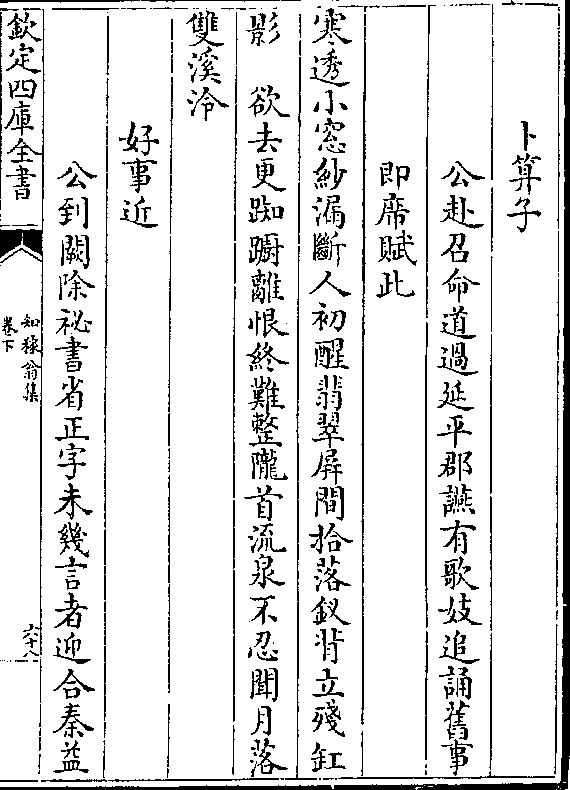 卜算子
公赴召命道過延平郡讌有歌妓追誦舊事
即席賦此
寒透小窓紗漏斷人初醒翡翠屏間拾落釵背立殘缸
影　欲去更踟躕離恨終難整隴首流泉不忍聞月落
雙溪泠
好事近
公到闕除祕書省正字未幾言者迎合秦益
欽定四庫全書
知稼翁集
卷下
六十八